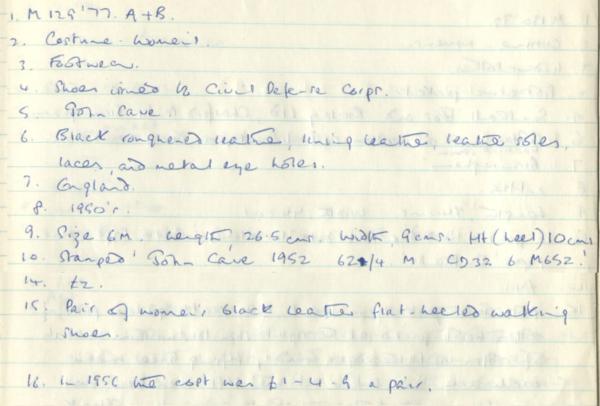 1. M 129 '77. A+B.
2. Costume - Women's.
3. Footwear.
4. Shoes issued by Civil Defense Corps.
5. John Cave
6. Black roughened leather, lining leather, leather soles,
laces, and metal eye holes.
7. England.
8. 1950's.
9. Size 6M. Length, 26.5 cms. Width, 9 cms. Ht (heel) 10 cms
10. Stamped 'John Cave 1952 62 /4 M CD32 6 M652.'
14. £2.
15. Pair of women's black leather flat-heeled walking
shoes.
16. In 1956 the cost was £1-4-9 a pair.